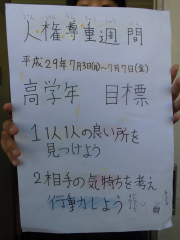 人権尊重週間
平成29年7月3日(月)～7月7日(金)
高学年 目標
1 1人1人の良い所を
見つけよう
2 相手の気持ちを考え
行動しよう